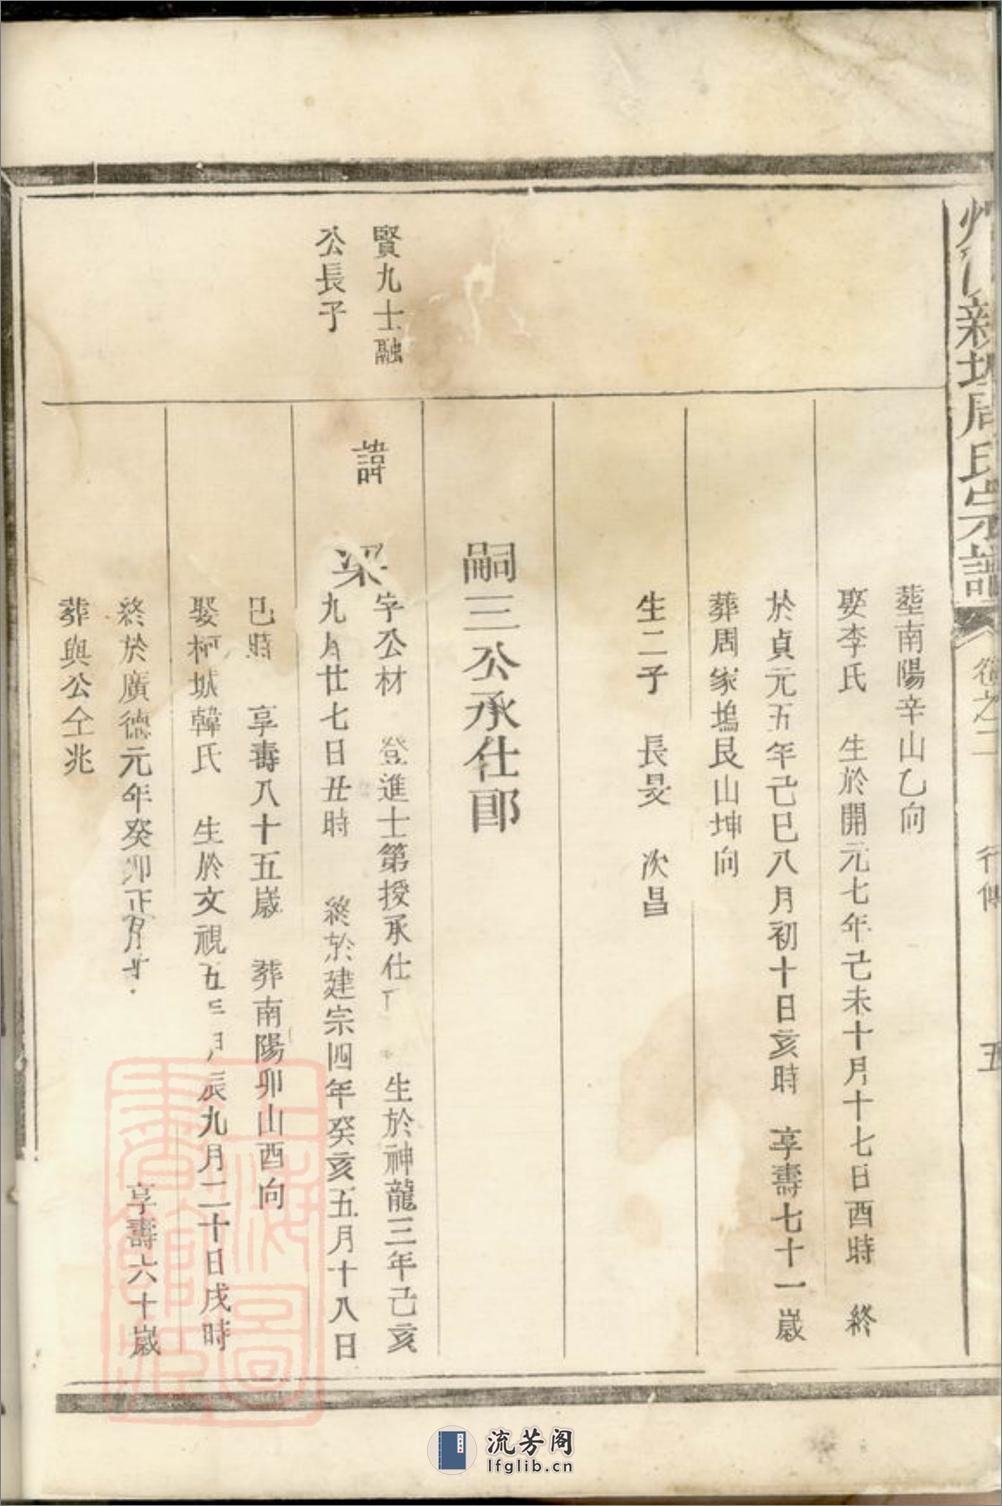 新 周氏宗譜
卷之二 行傳 五
塟南陽辛山乙向
娶李氏 生於開元七年己未十月十七日酉時 終
於貞元五年己巳八月初十日亥時 享壽七十一歲
葬周家塢艮山坤向
生二子 長旻 次昌
嗣三公承仕郎
賢九士融
公長子
諱 梁
字公材 登進士第授承仕 生於神龍三年己亥
九月廿七日丑時 終於建宗四年癸亥五月十八日
巳時 享壽八十五歲 葬南陽卯山酉向
娶柯城韓氏 生於文視五 辰九月二十日戌時
終於廣德元年癸卯正月 享壽六十歲
葬與公仝兆
上海圖書館藏
流芳阁
lfglib.cn